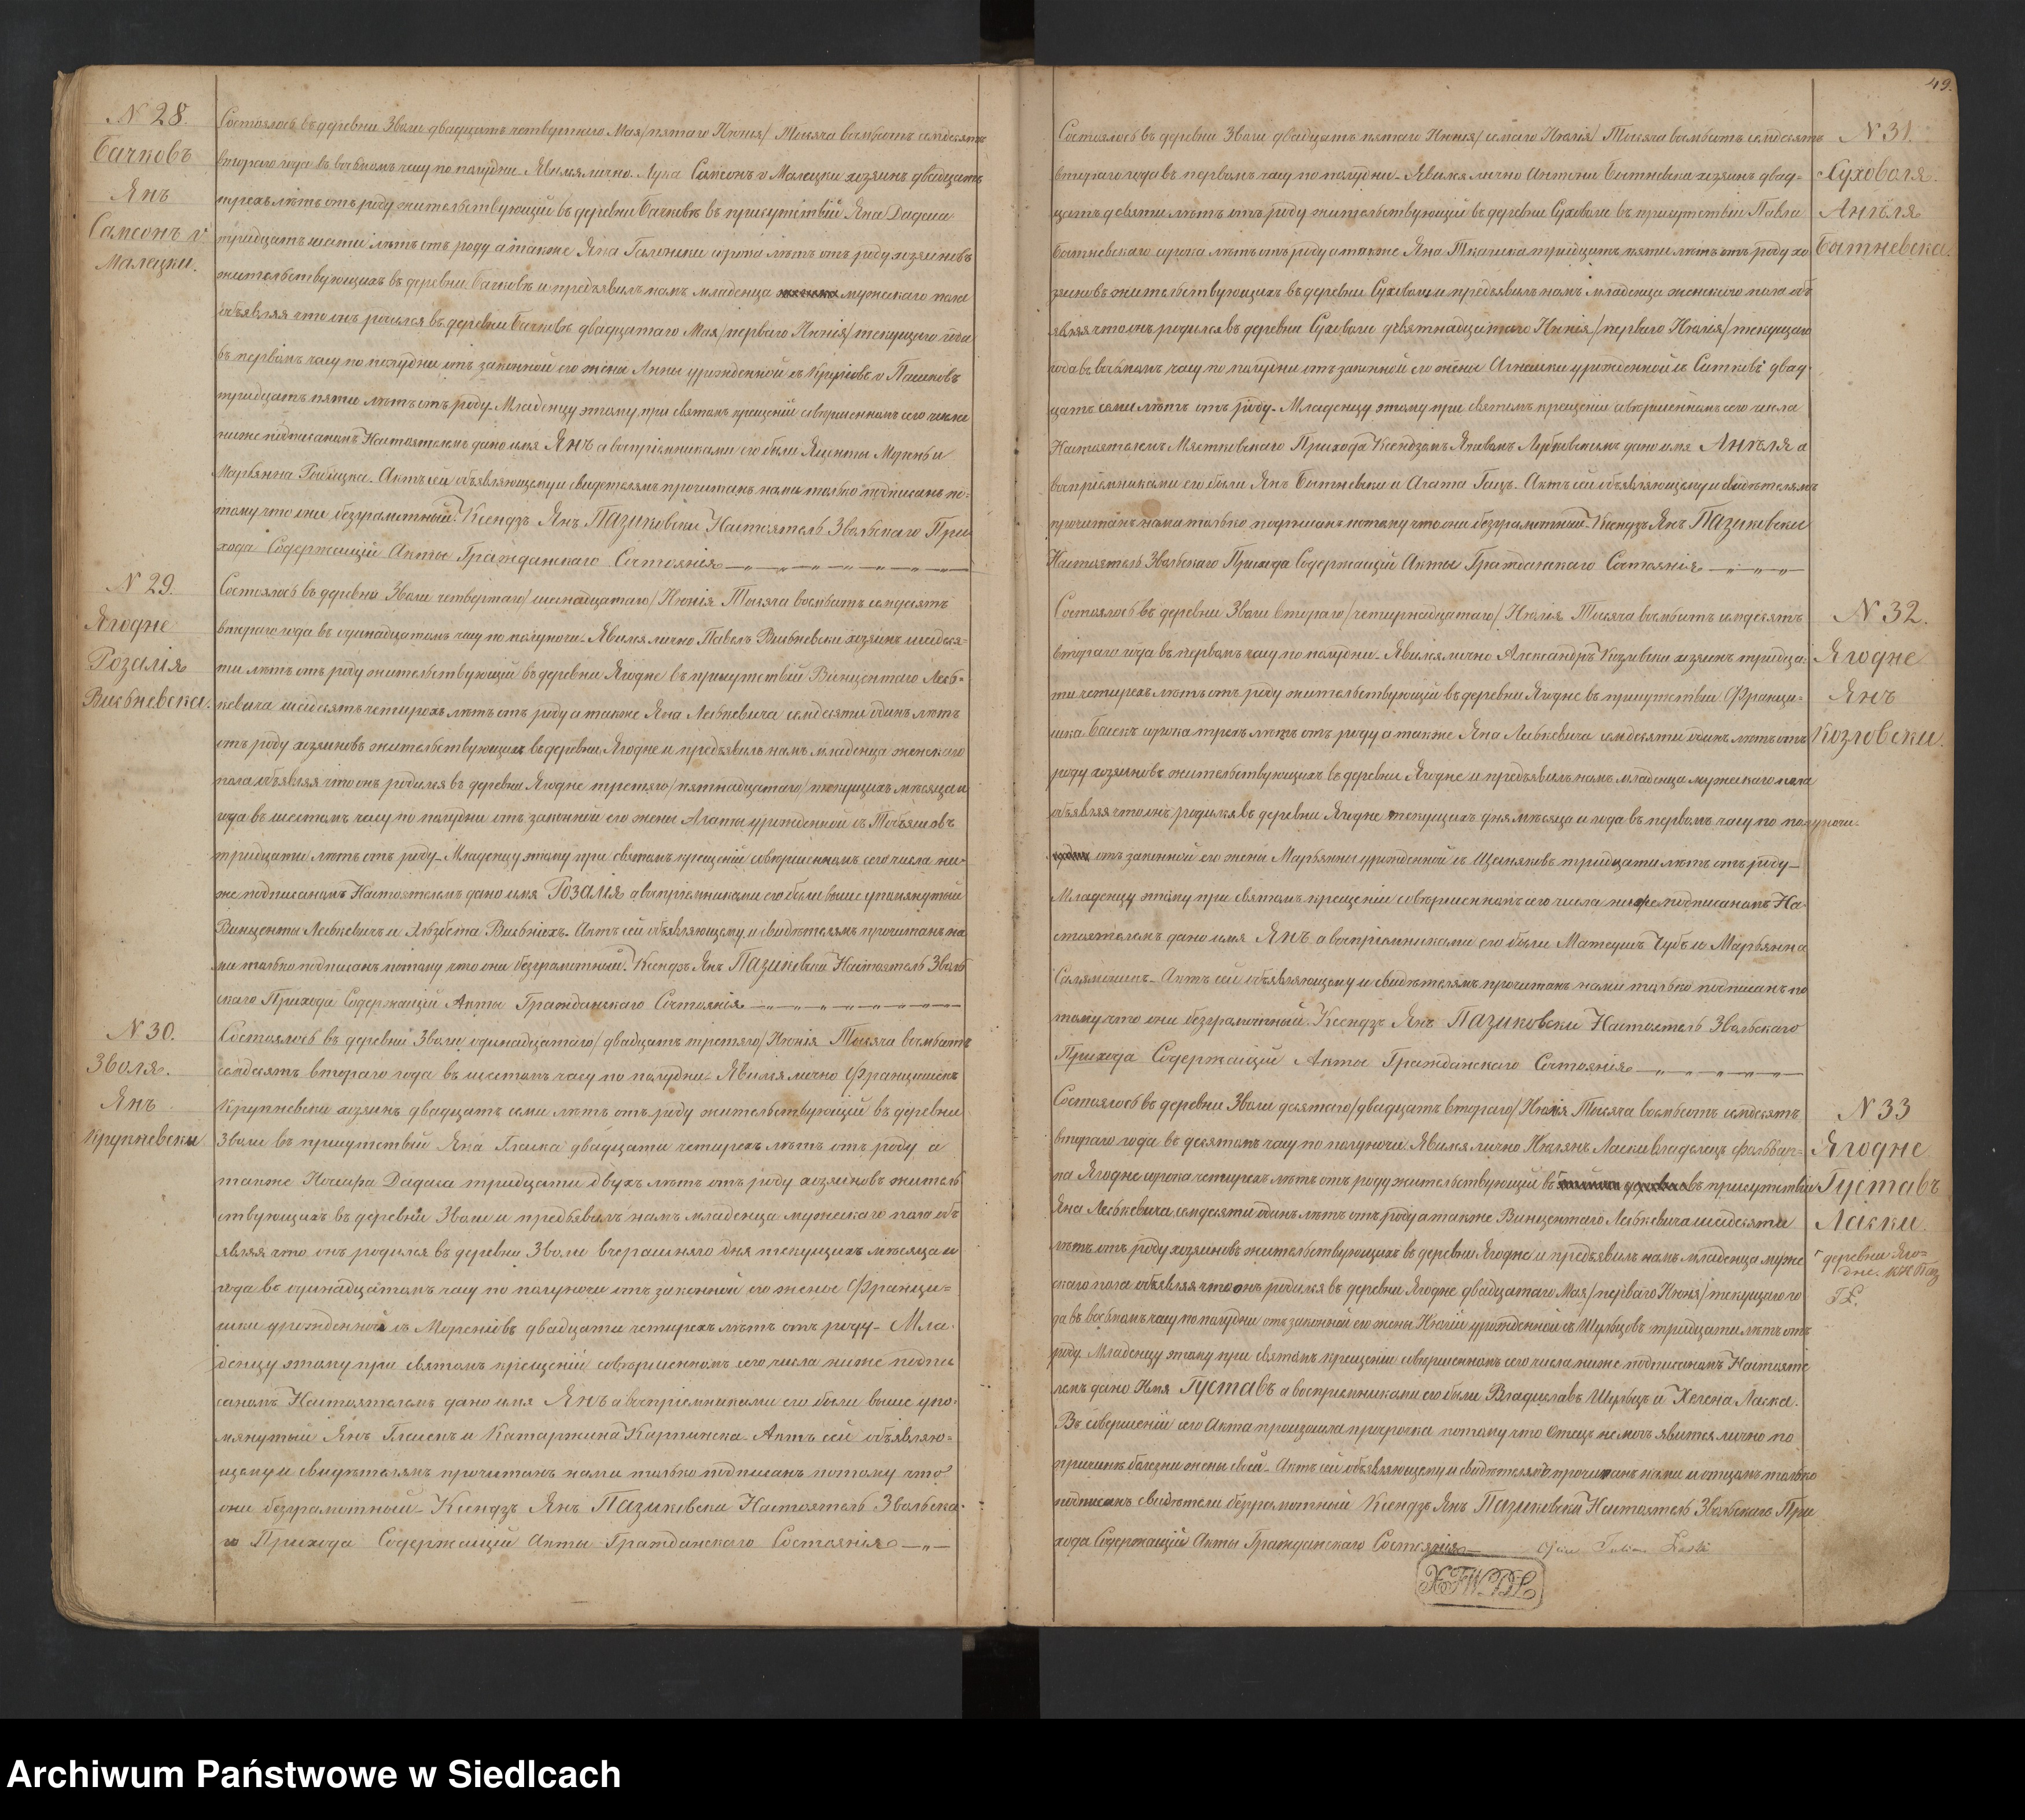 N 28.
Бачковъ
Янъ
Самсонъ v.
Малецки.
Состоялось въ деревни Зволи двадцать четвертаго Мая/пятаго Іюнія/ Тысяча восмьсотъ семдесятъ
втораго года въ восьмомъ часу по полудни. Явился лично Лука Самсонъ v Малецки хозяинъ двадцать
трехъ лѣтъ отъ роду жительствующій въ деревни Бачковѣ въ присутствій Яна Дадаса
тридцать шести лѣтъ отъ роду а также Яна сорока лѣтъ отъ роду хозяиновъ
жительствующихъ въ деревни Бачковѣ и предъявилъ намъ младенца мужескаго пола
объявляя что онъ родился въ деревни Бачковѣ двадцатаго Мая/перваго Іюнія/текущаго года
въ первомъ часу по полудни отъ законной его жены Анны урожденной съ v Пашковъ
тридцать пяти лѣтъ отъ роду. Младенцу этому при святомъ крещеній совершенномъ сего числа
ниже подписаномъ Настоятелемъ дано имя Янъ а воспріемниками его были и
Марьянна. Актъ сей объявляющему и свидетелямъ прочитанъ нами только подписанъ по-
тому что они безграмотный. Ксендзъ Янъ Пазиковски Настоятель Звольскаго При
хода Содержащій Акты Гражданскаго Состоянія
N 29.
Ягодне
Розалія
Вишневска.
Состоялось въ деревни Зволи четвертаго/шеснадцатаго/Іюнія Тысяча восмьсотъ семдесятъ
втораго года въ одинадцатомъ часу по полуночи. Явился лично Павелъ Вишневски хозяинъ шидеся-
ти лѣтъ отъ роду жительствующій въ деревни Ягодне въ присутствій Винцентаго Лесь-
кевича шидесятъ четирохъ лѣтъ отъ роду а также Яна Леськевича семдесяти одинъ лѣтъ
отъ роду хозяиновъ жительствующихъ въ деревни Ягодне и предъявилъ намъ младенца женскаго
пола объявляя что онъ родился въ деревни Ягодне третяго/пятнадцатаго/текущихъ мѣсяца и
года въ шестомъ часу по полудни отъ законной его жены Агаты урожденной съ
тридцати лѣтъ отъ роду. Младенцу этому при святомъ крещеній совершенномъ сего числа ни-
же подписаномъ Настоятелемъ дано имя Розалія а воспріемниками его были выше упомянутый
Винценты Леськевичъ и Елзбета. Актъ сей объявляющему и свидѣтелямъ прочитанъ на
ми только подписанъ потому что они безграмотный. Ксендзъ Янъ Пазиковски Настоятель Зволь
скаго Прихода Содержащій Акты Гражданскаго Состоянія
N 30.
Зволя.
Янъ
Крупневски
Состоялось въ деревни Зволи одинадцатаго/двадцать третяго/Іюнія Тысяча восмьсотъ
семдесятъ втораго года въ шестомъ часу по полудни. Явился лично Францишекъ
Крупневски хозяинъ двадцать семи лѣтъ отъ роду жительствующій въ деревни
Зволи въ присутствій Яна Гласка двадцати четирехъ лѣтъ отъ роду а
также Іосифа Дадаса тридцати двухъ лѣтъ отъ роду хозяиновъ житель
ствующихъ въ деревни Зволи и предъявилъ намъ младенца мужескаго пола объ
являя что онъ родился въ деревни Зволи вчерашняго дня текущихъ мѣсяца и
года въ одинадцатомъ часу по полуночи отъ законной его жены Францы-
шки урожденной съ двадцати четирехъ лѣтъ отъ роду. Мла-
денцу этому при святомъ крещеній совершенномъ сего числа ниже подпи
саномъ Настоятелемъ дано имя Янъ а воспріемниками его были выше упо-
мянутый Янъ Гласекъ и Катаржина Карпинска. Актъ сей объявляю-
щему и свидѣтелямъ прочитанъ нами только подписанъ потому что
они безграмотный. Ксендзъ Янъ Пазиковски Настоятель Звольска-
го Прихода Содержащій Акты Гражданскаго Состоянія
49.
N 31.
Суховоля.
Ангеля
Бытневска.
Состоялось въ деревни Зволи двадцать пятаго Іюнія/семаго Іюлія/ Тысяча восмьсотъ семдесятъ
втораго года въ первомъ часу по полудни. Явился лично Антони Бытневски хозяинъ двад-
цать девяти лѣтъ отъ роду жительствующій въ деревни Суховоли въ присутствіи Павла
Бытневскаго сорока лѣтъ отъ роду а также Яна Ткачика тридцать пяти лѣтъ отъ роду хо
зяиновъ жительствующихъ въ деревни Суховоли и предъявилъ намъ младенца женскаго пола объ
являя что онъ родился въ деревни Суховоли девятнадцатаго Іюнія/перваго Іюлія/текущаго
года въ восьмомъ часу по полудни отъ законной его жены Агнешки урожденной съ Ситковъ двад-
цать семи лѣтъ отъ роду. Младенцу этому при святомъ крещеніи совершенномъ сего числа
Настоятелемъ Мястковскаго Прихода Ксендзомъ дано имя Ангеля а
воспріемниками его были Янъ Бытневски и Агата Гацъ. Актъ сей объявляющему и свидѣтелямъ
прочитанъ нами только подписанъ потому что они безграмотный. Ксендзъ Янъ Пазиковски
Настоятель Звольскаго Прихода Содержащій Акты Гражданскаго Состоянія
N 32.
Ягодне
Янъ
Козловски.
Состоялось въ деревни Зволи втораго/четырнадцатаго/Іюлія Тысяча восмьсотъ семдесятъ
втораго года въ первомъ часу по полудни. Явился лично Александръ Козловски хозяинъ тридца-
ти четирехъ лѣтъ отъ роду жительствующій въ деревни Ягодне въ присутствіи Франци-
шка сорока трехъ лѣтъ отъ роду а также Яна Леськевича семдесяти одинъ лѣтъ отъ
роду хозяиновъ жительствующихъ въ деревни Ягодне и предъявилъ намъ младенца мужескаго пола
объявляя что онъ родился въ деревни Ягодне текущихъ дня мѣсяца и года въ первомъ часу по полуночи.
отъ законной его жены Марьянны урожденной съ Щыпяковъ тридцати лѣтъ отъ роду
Младенцу этому при святомъ крещеніи совершенномъ сего числа ниже подписаномъ На-
стоятелемъ дано имя Янъ а воспріемниками его были Матеушъ и Марьянна
Актъ сей объявляющему и свидѣтелямъ прочитанъ нами только подписанъ по
тому что они безграмотный. Ксендзъ Янъ Пазиковски Настоятель Звольскаго
Прихода Содержащій Акты Гражданскаго Состоянія
N 33
Ягодне
Густавъ
Ласки.
деревни Яго-
дне.
Состоялось въ деревни Зволи десятаго/двадцать втораго/Іюлія Тысяча восмьсотъ семдесятъ
втораго года въ десятомъ часу по полуночи. Явился лично Юлянъ Ласки владелецъ фольвар-
ка Ягодне сорока четирехъ лѣтъ отъ роду жительствующій въ въ присутствіи
Яна Леськевича семдесяти одинъ лѣтъ отъ роду а также Винцентаго Леськевича шидесяти
лѣтъ отъ роду хозяиновъ жительствующихъ въ деревни Ягодне и предъявилъ намъ младенца муже
скаго пола объявляя что онъ родился въ деревни Ягодне двадцатаго Мая/перваго Іюня/текущаго го
да въ восьмомъ часу по полудни отъ законной его жены Юлій урожденной съ Шульцовъ тридцати лѣтъ отъ
роду. Младенцу этому при святомъ крещеніи совершенномъ сего числа ниже подписаномъ Настояте
лемъ дано Имя Густавъ а воспріемниками его были Владиславъ Шульцъ и Хелена Ласка.
Въ совершеній сего Акта произошла просрочка потому что Отецъ не могъ явится лично по
причинѣ болезни жены своей. Актъ сей объявляющему и свидѣтелямъ прочитанъ нами и отцомъ только
подписанъ свидѣтели безграмотный Ксендзъ Янъ Пазиковски Настоятель Звольскаго При
хода Содержащій Акты Гражданскаго Состоянія Ojciec Julian Laski
Archiwum Państwowe w Siedlcach